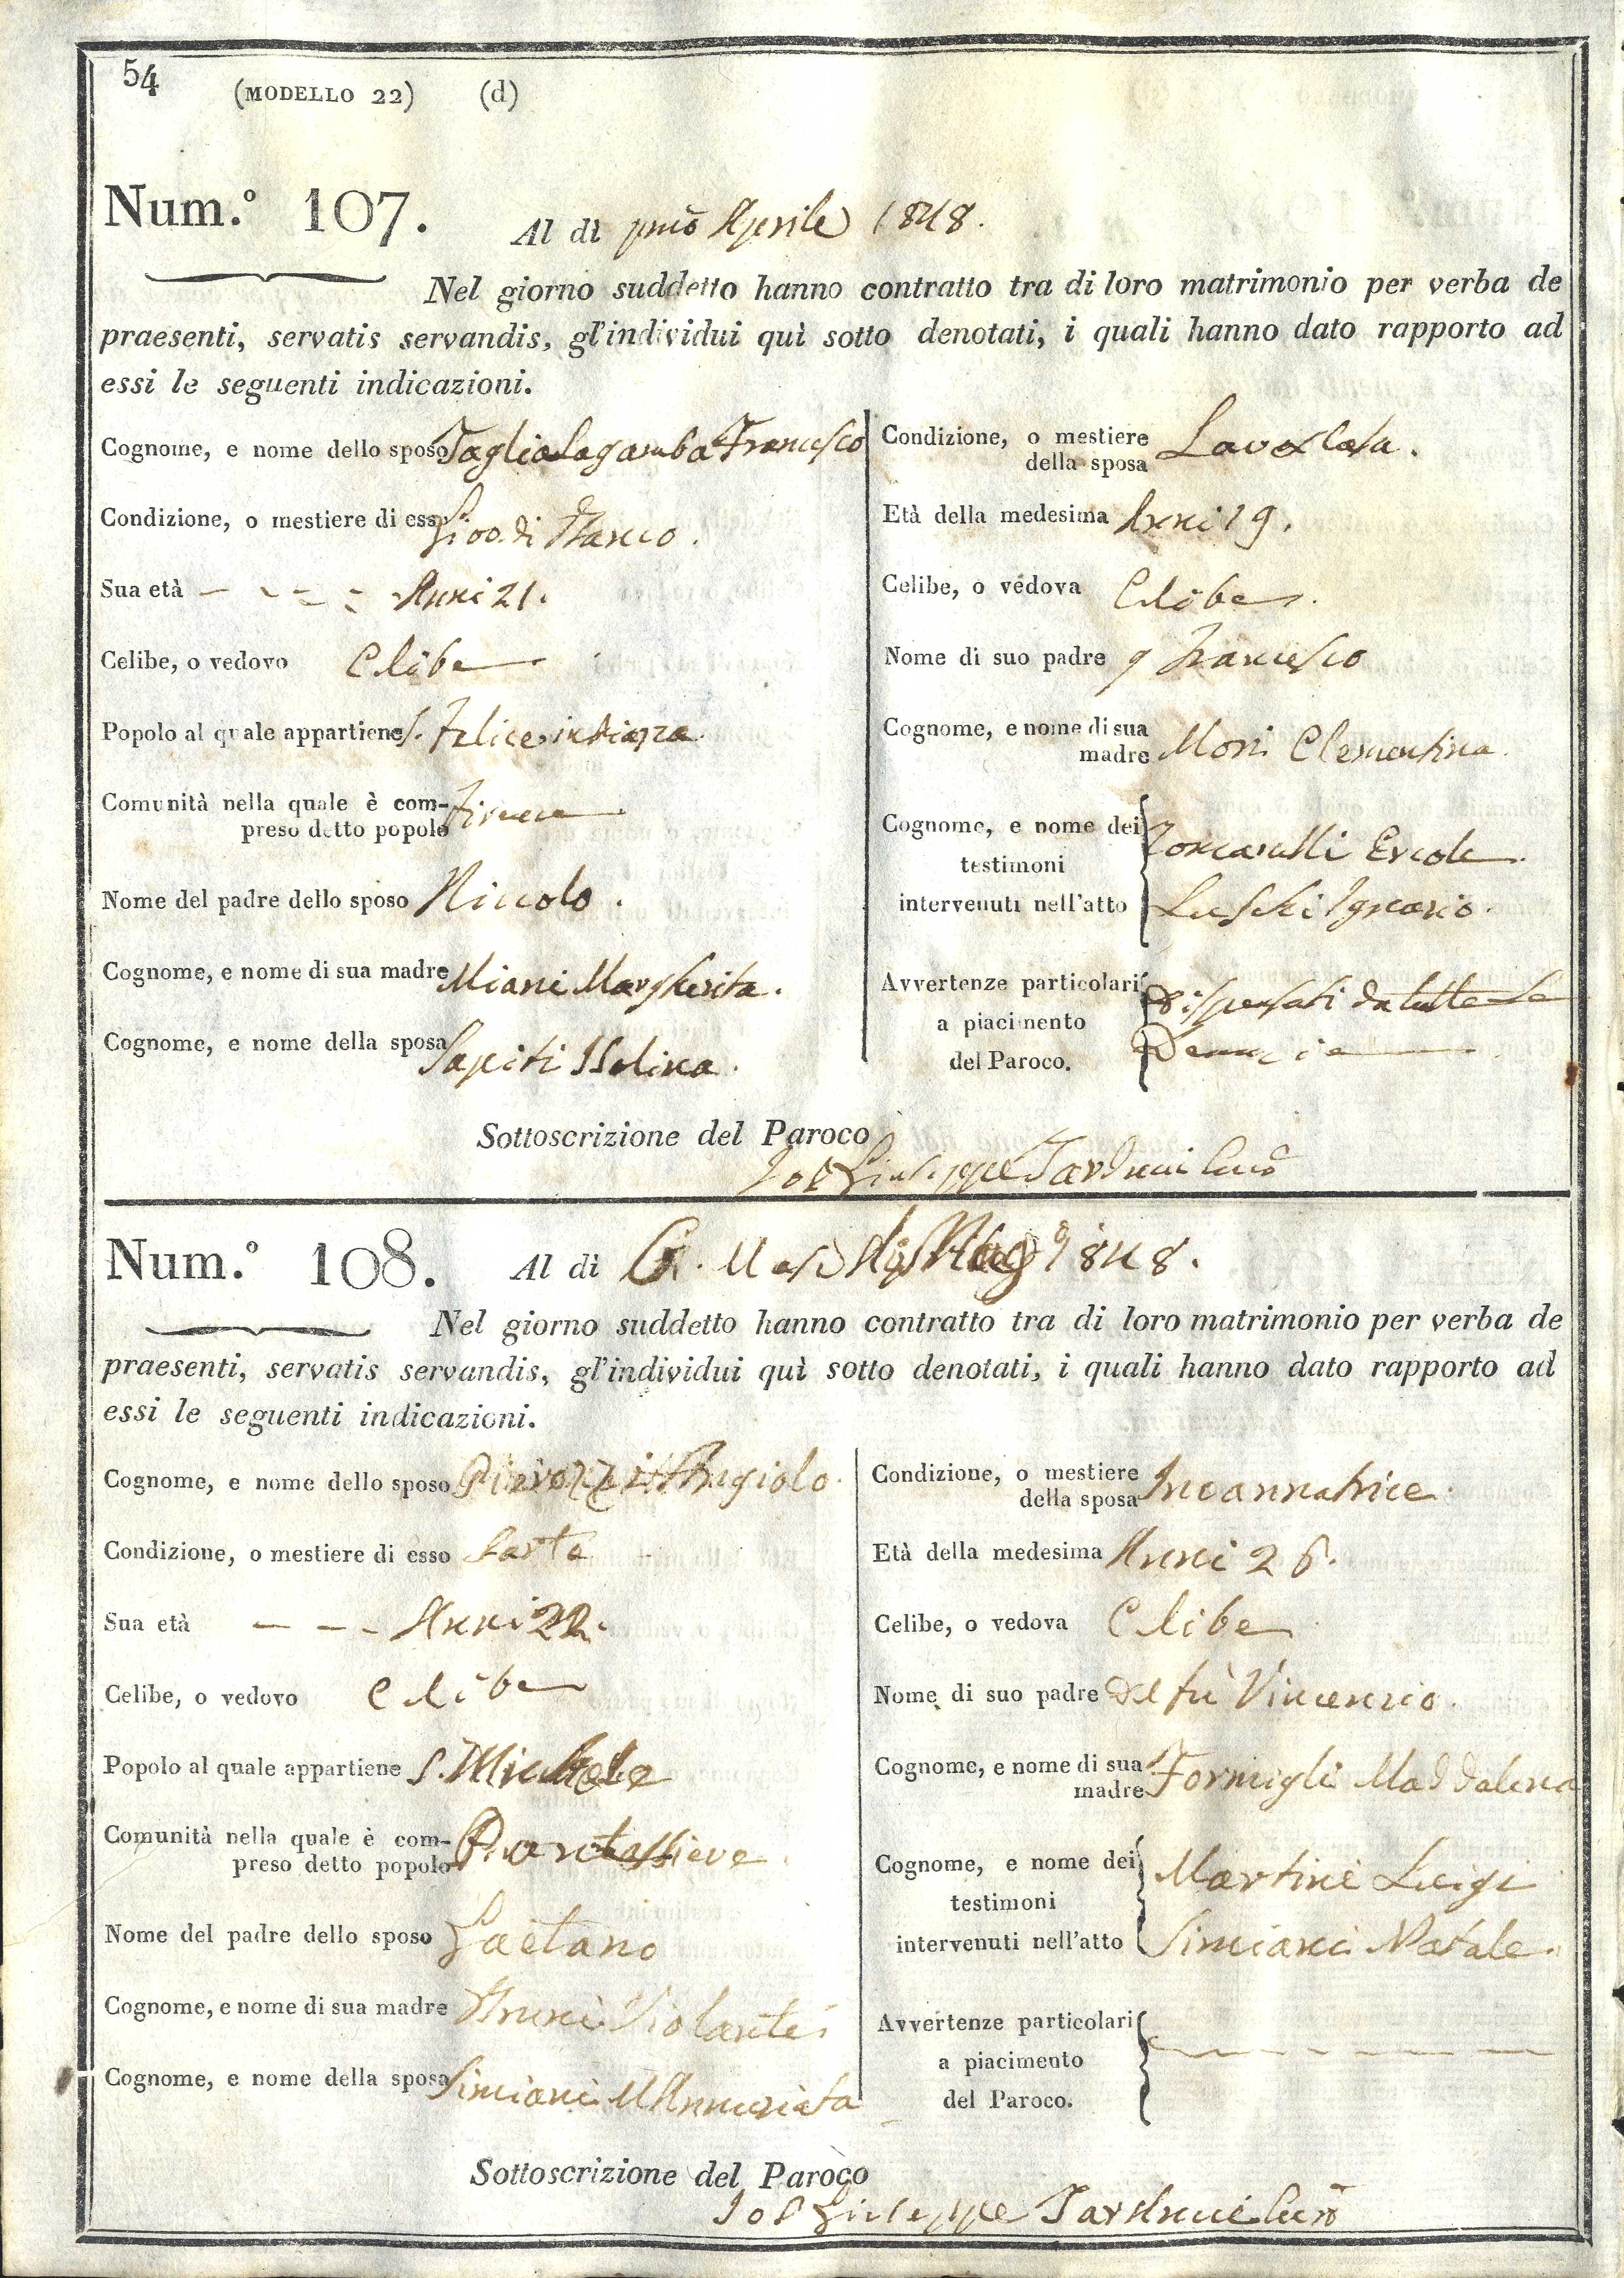 54
(MODELLO 22) (d)
Num.º 107. Al dì pmo Aprile 1848.
Nel giorno suddetto hanno contratto tra di loro matrimonio per verba de
praesenti, servatis servandis, gl'individui quì sotto denotati, i quali hanno dato rapporto ad
essi le seguenti indicazioni.
Cognome, e nome dello sposo Tagliasagamba Francesco
Condizione, o mestiere di esso di Banco.
Sua età - - - - Anni 21.
Celibe, o vedovo Celibe
Popolo al quale appartiene S. Felice in Piazza
Comunità nella quale è com-
preso detto popolo Firenze
Nome del padre dello sposo Niccolo.
Cognome, e nome di sua madre Miani Margherita.
Cognome, e nome della sposa Sapiti Isolina.
Condizione, o mestiere
della sposa
Età della medesima Anni 19.
Celibe, o vedova Celibe.
Nome di suo padre q Francesco
Cognome, e nome di sua
madre Mori Clementina.
Cognome, e nome dei
testimoni Ercole
intervenuti nell'atto Luschi Ignazio.
Avvertenze particolari Dispensati da tutte le
a piacimento
del Paroco. Denunzie
Sottoscrizione del Paroco
Io P Giuseppe Tarduci Curo
Num.º 108. Al dì 1848.
Nel giorno suddetto hanno contratto tra di loro matrimonio per verba de
praesenti, servatis servandis, gl'individui quì sotto denotati, i quali hanno dato rapporto ad
essi le seguenti indicazioni.
Cognome, e nome dello sposo Pierozzi Angiolo.
Condizione, o mestiere di esso Sarto
Sua età - - - Anni 22.
Celibe, o vedovo Celibe
Popolo al quale appartiene S. Michele
Comunità nella quale è com-
preso detto popolo Pontassieve.
Nome del padre dello sposo Gaetano
Cognome, e nome di sua madre Bruni Violante.
Cognome, e nome della sposa Simiani M Annunziata
Condizione, o mestiere
della sposa Incannatrice.
Età della medesima Anni 26.
Celibe, o vedova Celibe
Nome di suo padre del fù Vincenzio.
Cognome, e nome di sua
madre Formigli Maddalena
Cognome, e nome dei
testimoni Martini Luigi
intervenuti nell'atto Simiani Natale.
Avvertenze particolari
a piacimento
del Paroco.
Sottoscrizione del Paroco
Io P Giuseppe Tarduci Curo